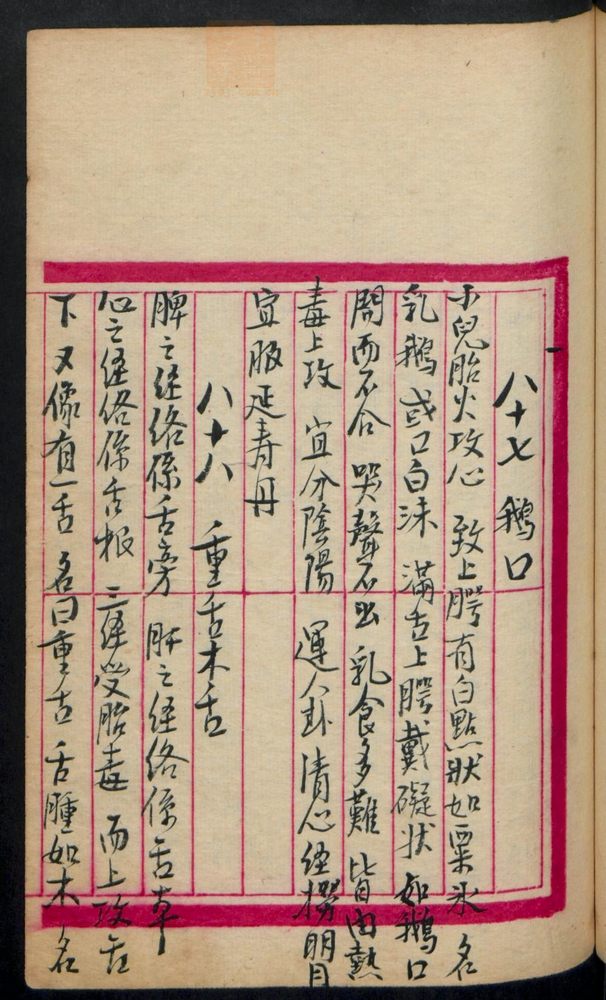 八十七 鵝口
小兒胎火攻心 致上腭有白點狀如粟米 名
乳鵝 或口白沫 滿舌上腭戴礙狀如鵝口
開而不合 哭聲不出 乳食多難 皆由熱
毒上攻 宜分陰陽 運八卦 清心經 撈明月
宜服延壽丹
八十八 重舌木舌
脾之經絡係舌旁 肝之經絡係舌
心之經絡係舌根 三經受胎毒 而上攻舌
下又像有一舌 名曰重舌 舌腫如木 名